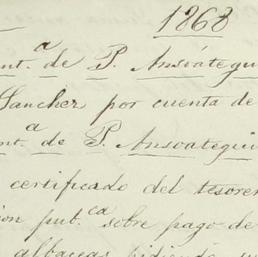 1868
nt.a de P. Ansoátegui
Sancher por cuenta de
nt.a de P. Ansoategui
certificado del tesorer
ion pub.ca sobre pago de
albaceas pidiendo